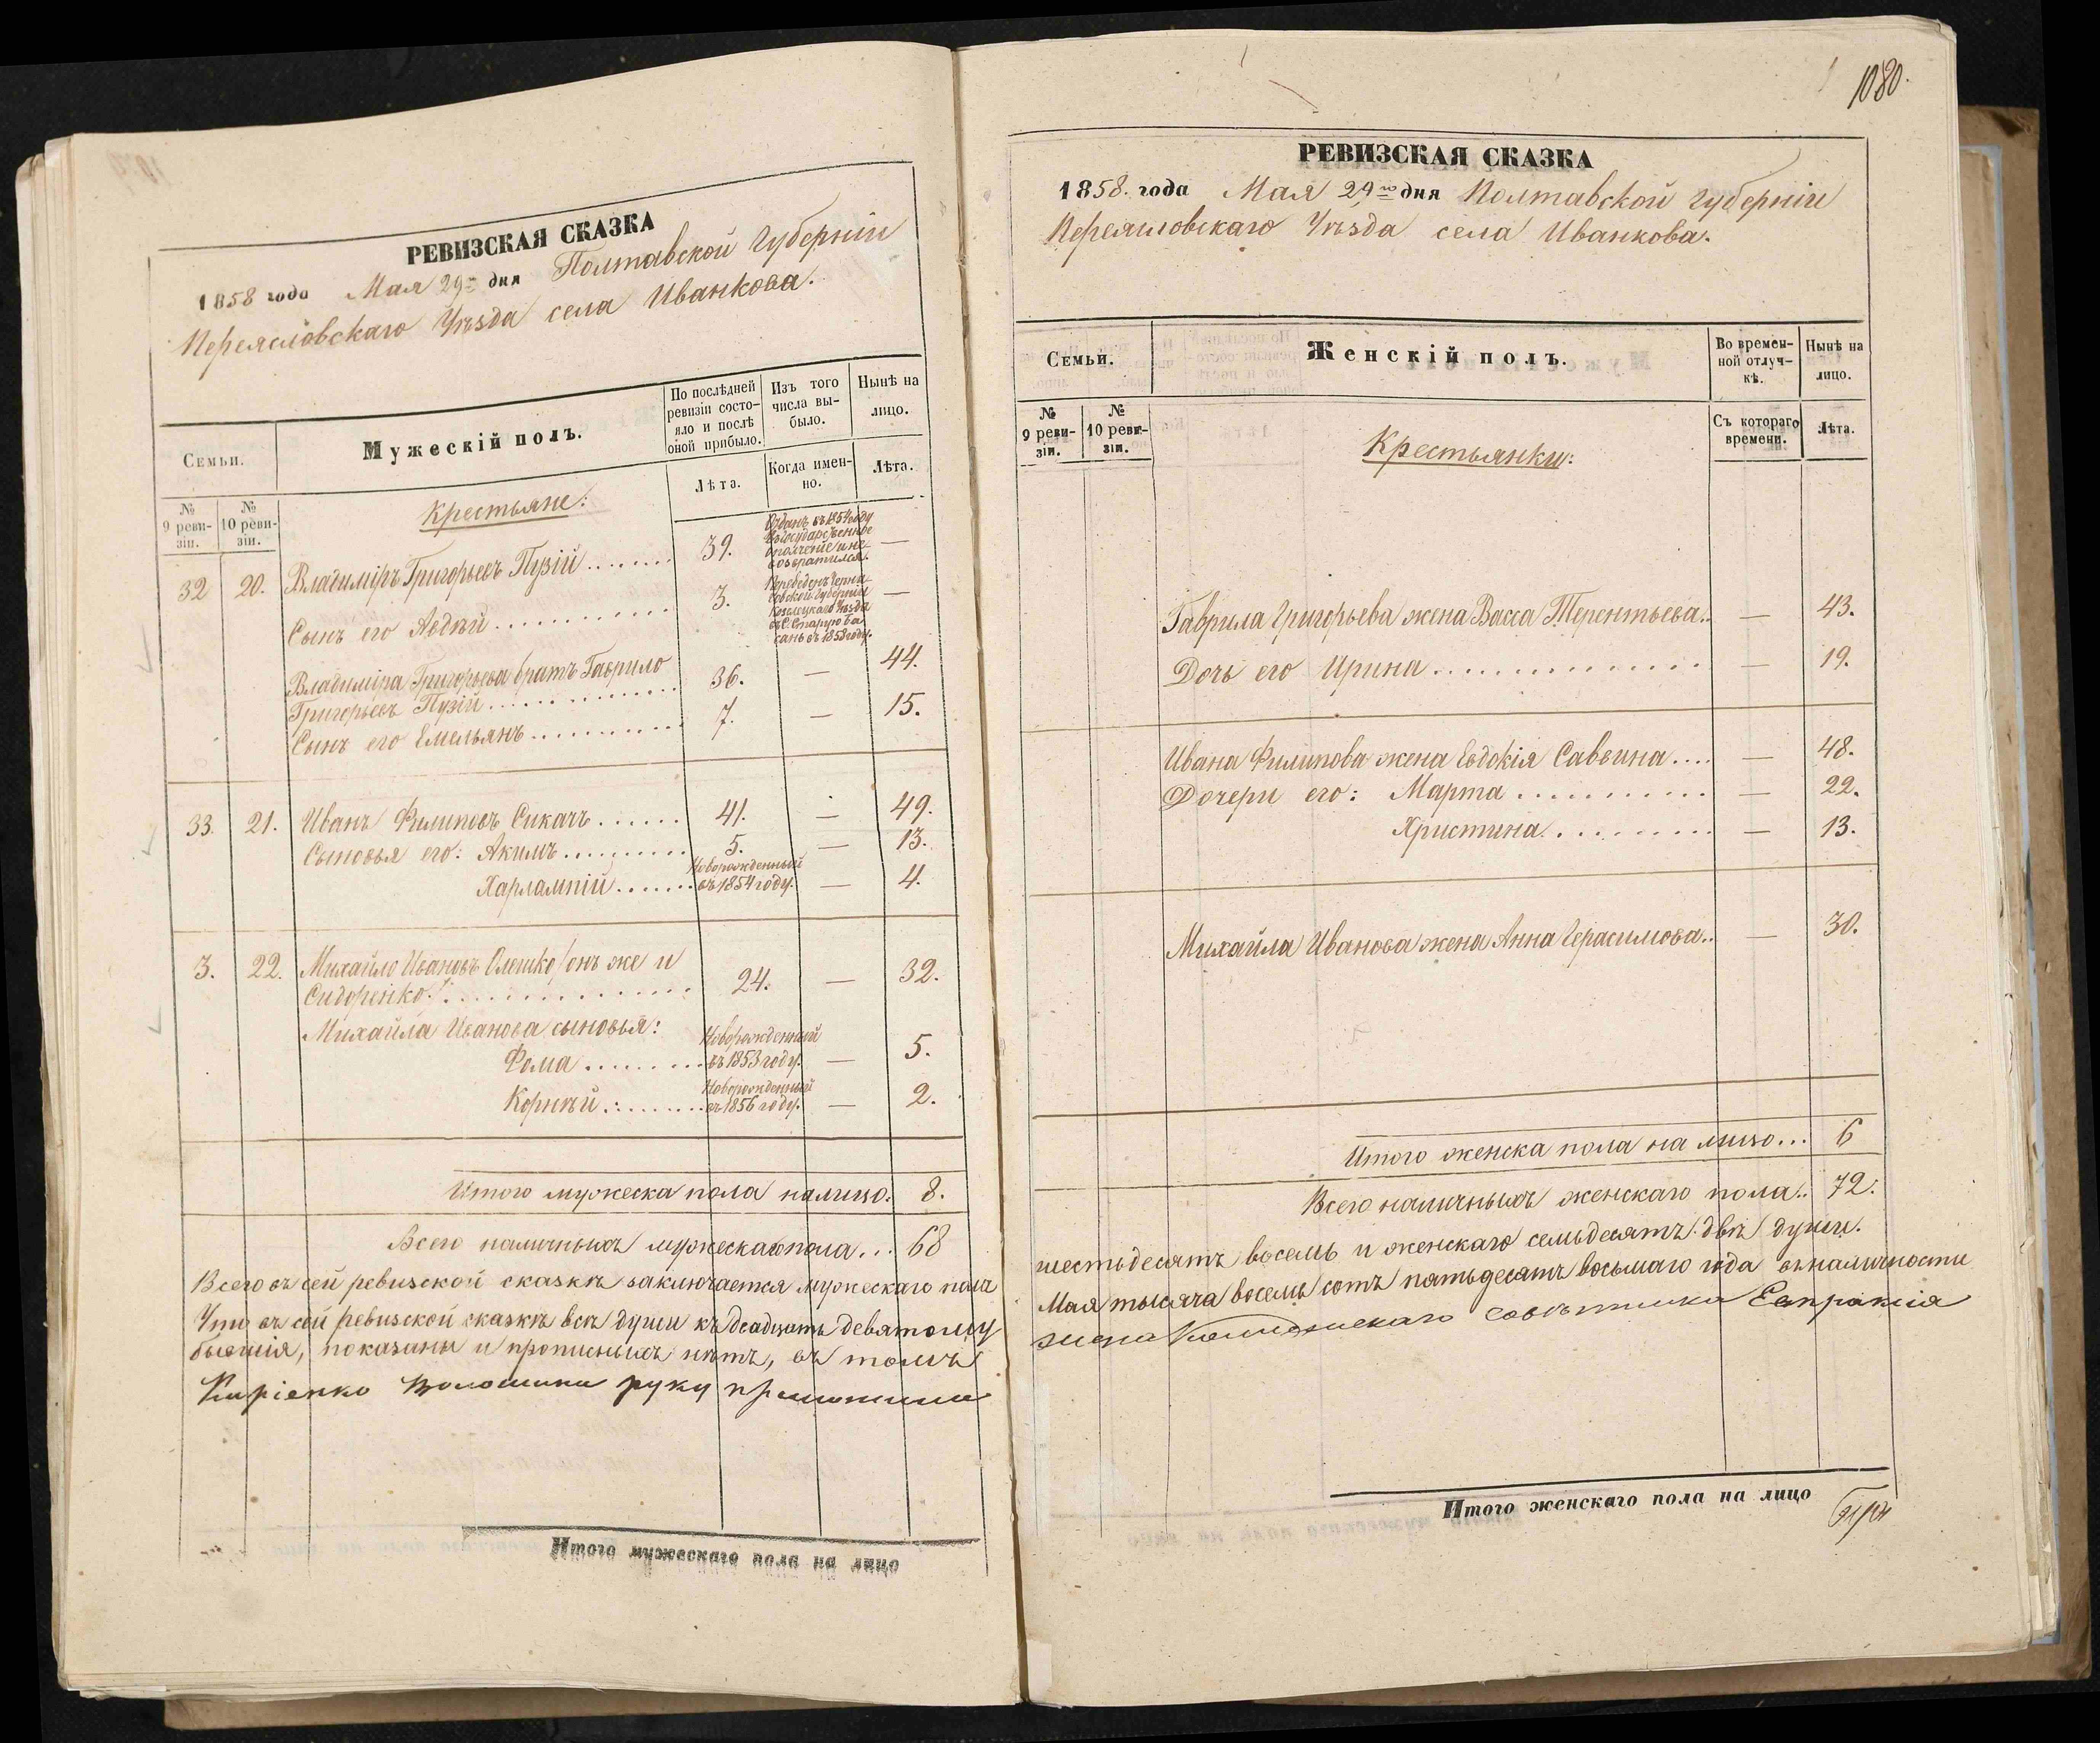 РЕВИЗСКАЯ СКАЗКА
1858 года Мая 29го дня Полтавской Губерніи
Переясловскаго Уѣзда села Иванкова.
Семьи.
Мужескій полъ.
По послѣдней ревизіи состо-
яло и послѣ
оной прибыло.
Изъ того
числа вы-
было.
Нынѣ на
лицо.
№
9 реви-
зіи.
№
10 реви-
зіи.
Крестьяне:
Лѣта.
Когда имен-
но.
Лѣта.
32 20. Владиміръ Григорьевъ Пузій ........ 39. Отданъ въ 1854 году
въ государственное
ополченіе и не
возвратился. —
Сынъ его Авдѣй ............ 3. Переведенъ Черни-
говской Губерніи
Козелецкаго Уѣзда
въ С. Старую Ба
сань въ 1853 году. —
Владиміра Григорьева братъ Гаврило
Григорьевъ Пузій .............. 36. — 44.
Сынъ его Емельянъ ........... 7. — 15.
33. 21. Иванъ Филиповъ Сикачъ ...... 41. — 49.
Сыновья его: Акимъ .......... 5. — 13.
Харлампій ....... Новорожденный
въ 1854 году. — 4.
3. 22. Михайло Ивановъ Олешко /онъ же и
Сидоренко/ ................ 24. — 32.
Михайла Иванова сыновья:
Фома ......... Новорожденный
въ 1853 году. — 5.
Корнѣй ......... Новорожденный
въ 1856 году. — 2.
Итого мужеска пола налицо. 8.
Всего наличныхъ мужескаго пола... 68
Всего въ сей ревизской сказкѣ заключается мужескаго пола
Что въ сей ревизской сказкѣ всѣ души къ двадцать девятому
бывшія, показаны и прописныхъ нѣтъ, въ томъ
Киріенко Волошина руку приложила
Итого мужескаго пола на лицо
1080.
РЕВИЗСКАЯ СКАЗКА
1858. года Мая 29го дня Полтавской Губерніи
Переясловскаго Уѣзда села Иванкова.
Семьи.
Женскій полъ.
Во времен-
ной отлуч-
кѣ.
Нынѣ на
лицо.
№
9 реви-
зіи.
№
10 реви-
зіи.
Крестьянки:
Съ котораго
времени.
Лѣта.
Гаврила Григорьева жена Васса Терентьева.. — 43.
Дочь его Ирина ................ — 19.
Ивана Филипова жена Евдокія Саввина .... — 48.
Дочери его: Марта ........... — 22.
Христина .......... — 13.
Михайла Иванова жена Анна Герасимова.. — 30.
Итого женска пола на лицо... 6
Всего наличныхъ женскаго пола.. 72.
шестьдесятъ восемь и женскаго семьдесятъ двѣ души.
Мая тысяча восемь сотъ пятьдесятъ восьмаго года въ наличности
жена совѣтника Евпраксія
Итого женскаго пола на лицо